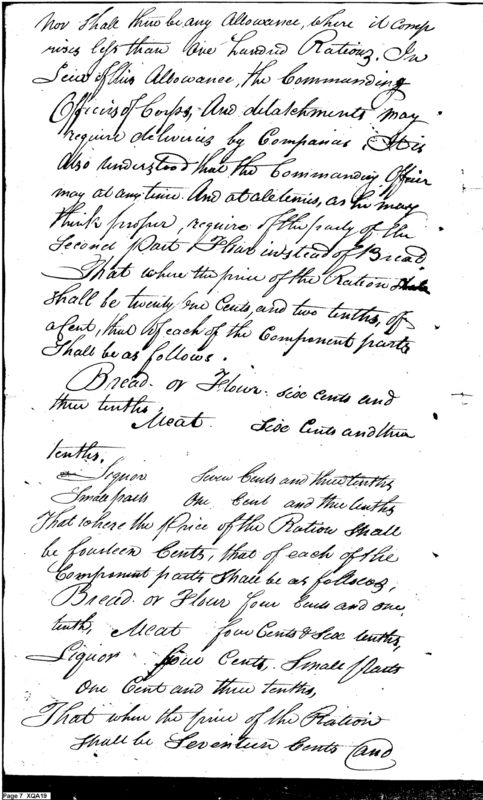 Nor shall there be any Allowance, where it comp
rises less than One hundred Rations. In
Lieu of this Allowance, the Commanding
Officers of Corps, And detachments may
require deliveries by Companies. It is
Also understood that the Commanding Officer
may at any time. And at all times, as he may
think proper, require of the party of the
Second Part Flour instead of Bread
That where the price of the Ration
shall be twenty One Cents, and two tenths, of
a Cent, that of each of the Component parts
Shall be as follows.
Bread. or Flour. six cents and
three tenths,
Meat. Six Cents and three
tenths.
Liquor Seven Cents and three tenths
Small parts One Cent and three tenths
That where the Price of the Ration shall
be fourteen Cents, that of each of the
Component parts shall be as follows,
Bread. or Flour four Cents and one
tenth, Meat four Cents & Six tenths,
Liquor four Cents. Small Parts
One Cent and three tenths,
That when the price of the Ration
shall be Seventeen Cents (and
Page 7 XQA19